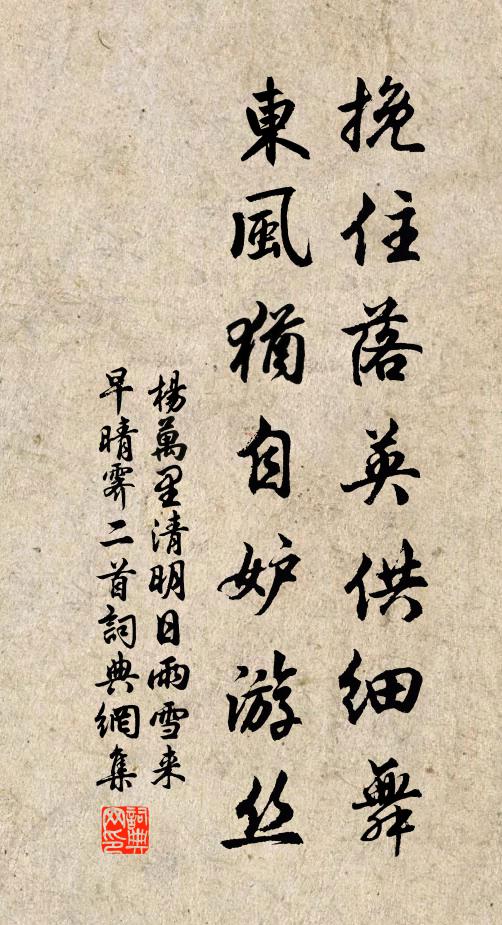 挽住落英供細舞
東風猶自妒游丝
楊萬里清明日雨雪来
早晴霽二首詞典網集
詞典
网印